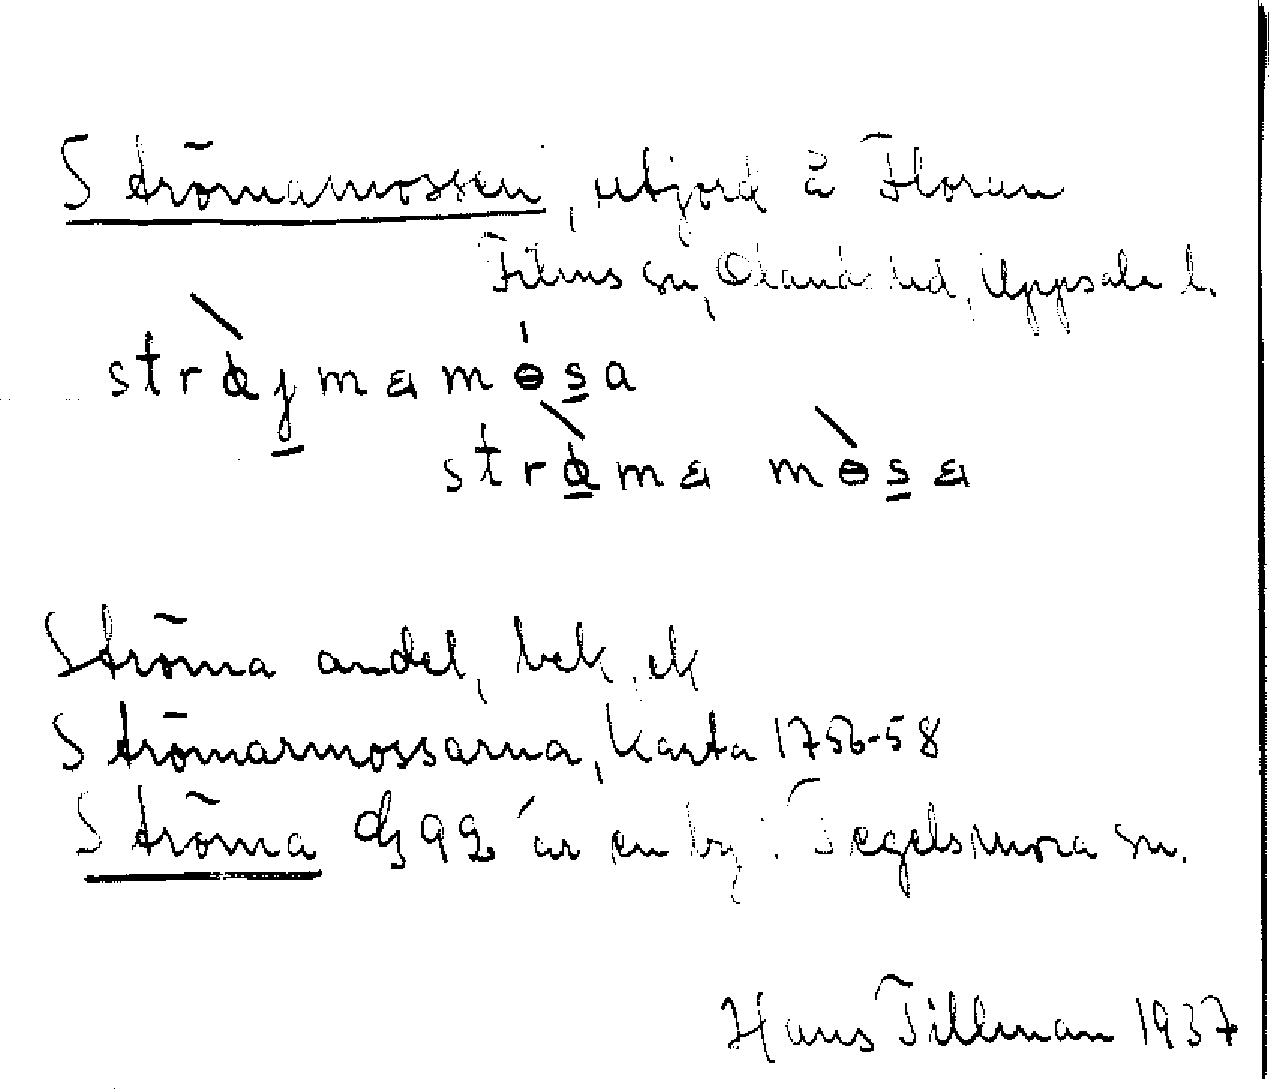 Strömamossen, utjord å Floran
Films sn, Olands hd, Uppsala l.
Ströma andel, bek. ek
Strömarmossarna, karta 1756-58
Ströma 92 är en by i Tegelsmora sn.
Hans Tillman 1937